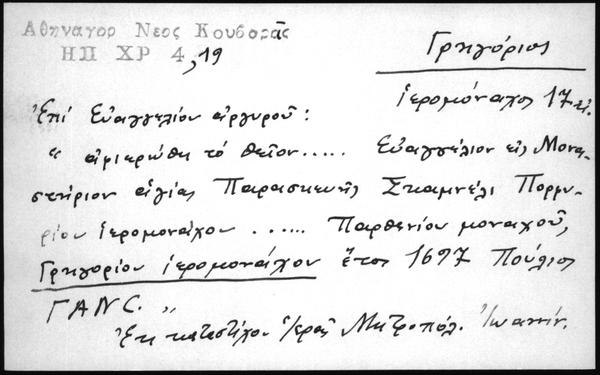 Αθηναγορ Νεος Κουβαρᾶς
ΗΠ ΧΡ 4, 19
Γρηγόριος
ἱερομόναχος 17 αἰ.
Ἐπί Εὐαγγελίου ἀργυροῦ:
" ἀφιερώθη τό θεῖον..... Εὐαγγέλιον εἰς Μονα-
στήριον ἁγίας Παρασκευῆς Σκαμνέλι Πορφυ-
ρίου ἱερομονάχου ...... Παρθενίου μοναχοῦ,
Γρηγορίου ἱερομονάχου ἔτος 1697 Πούλιος
ΓΑΝС. "
Ἐκ καταστίχου Ἱερᾶς Μητροπόλ. Ἰωαννίν.